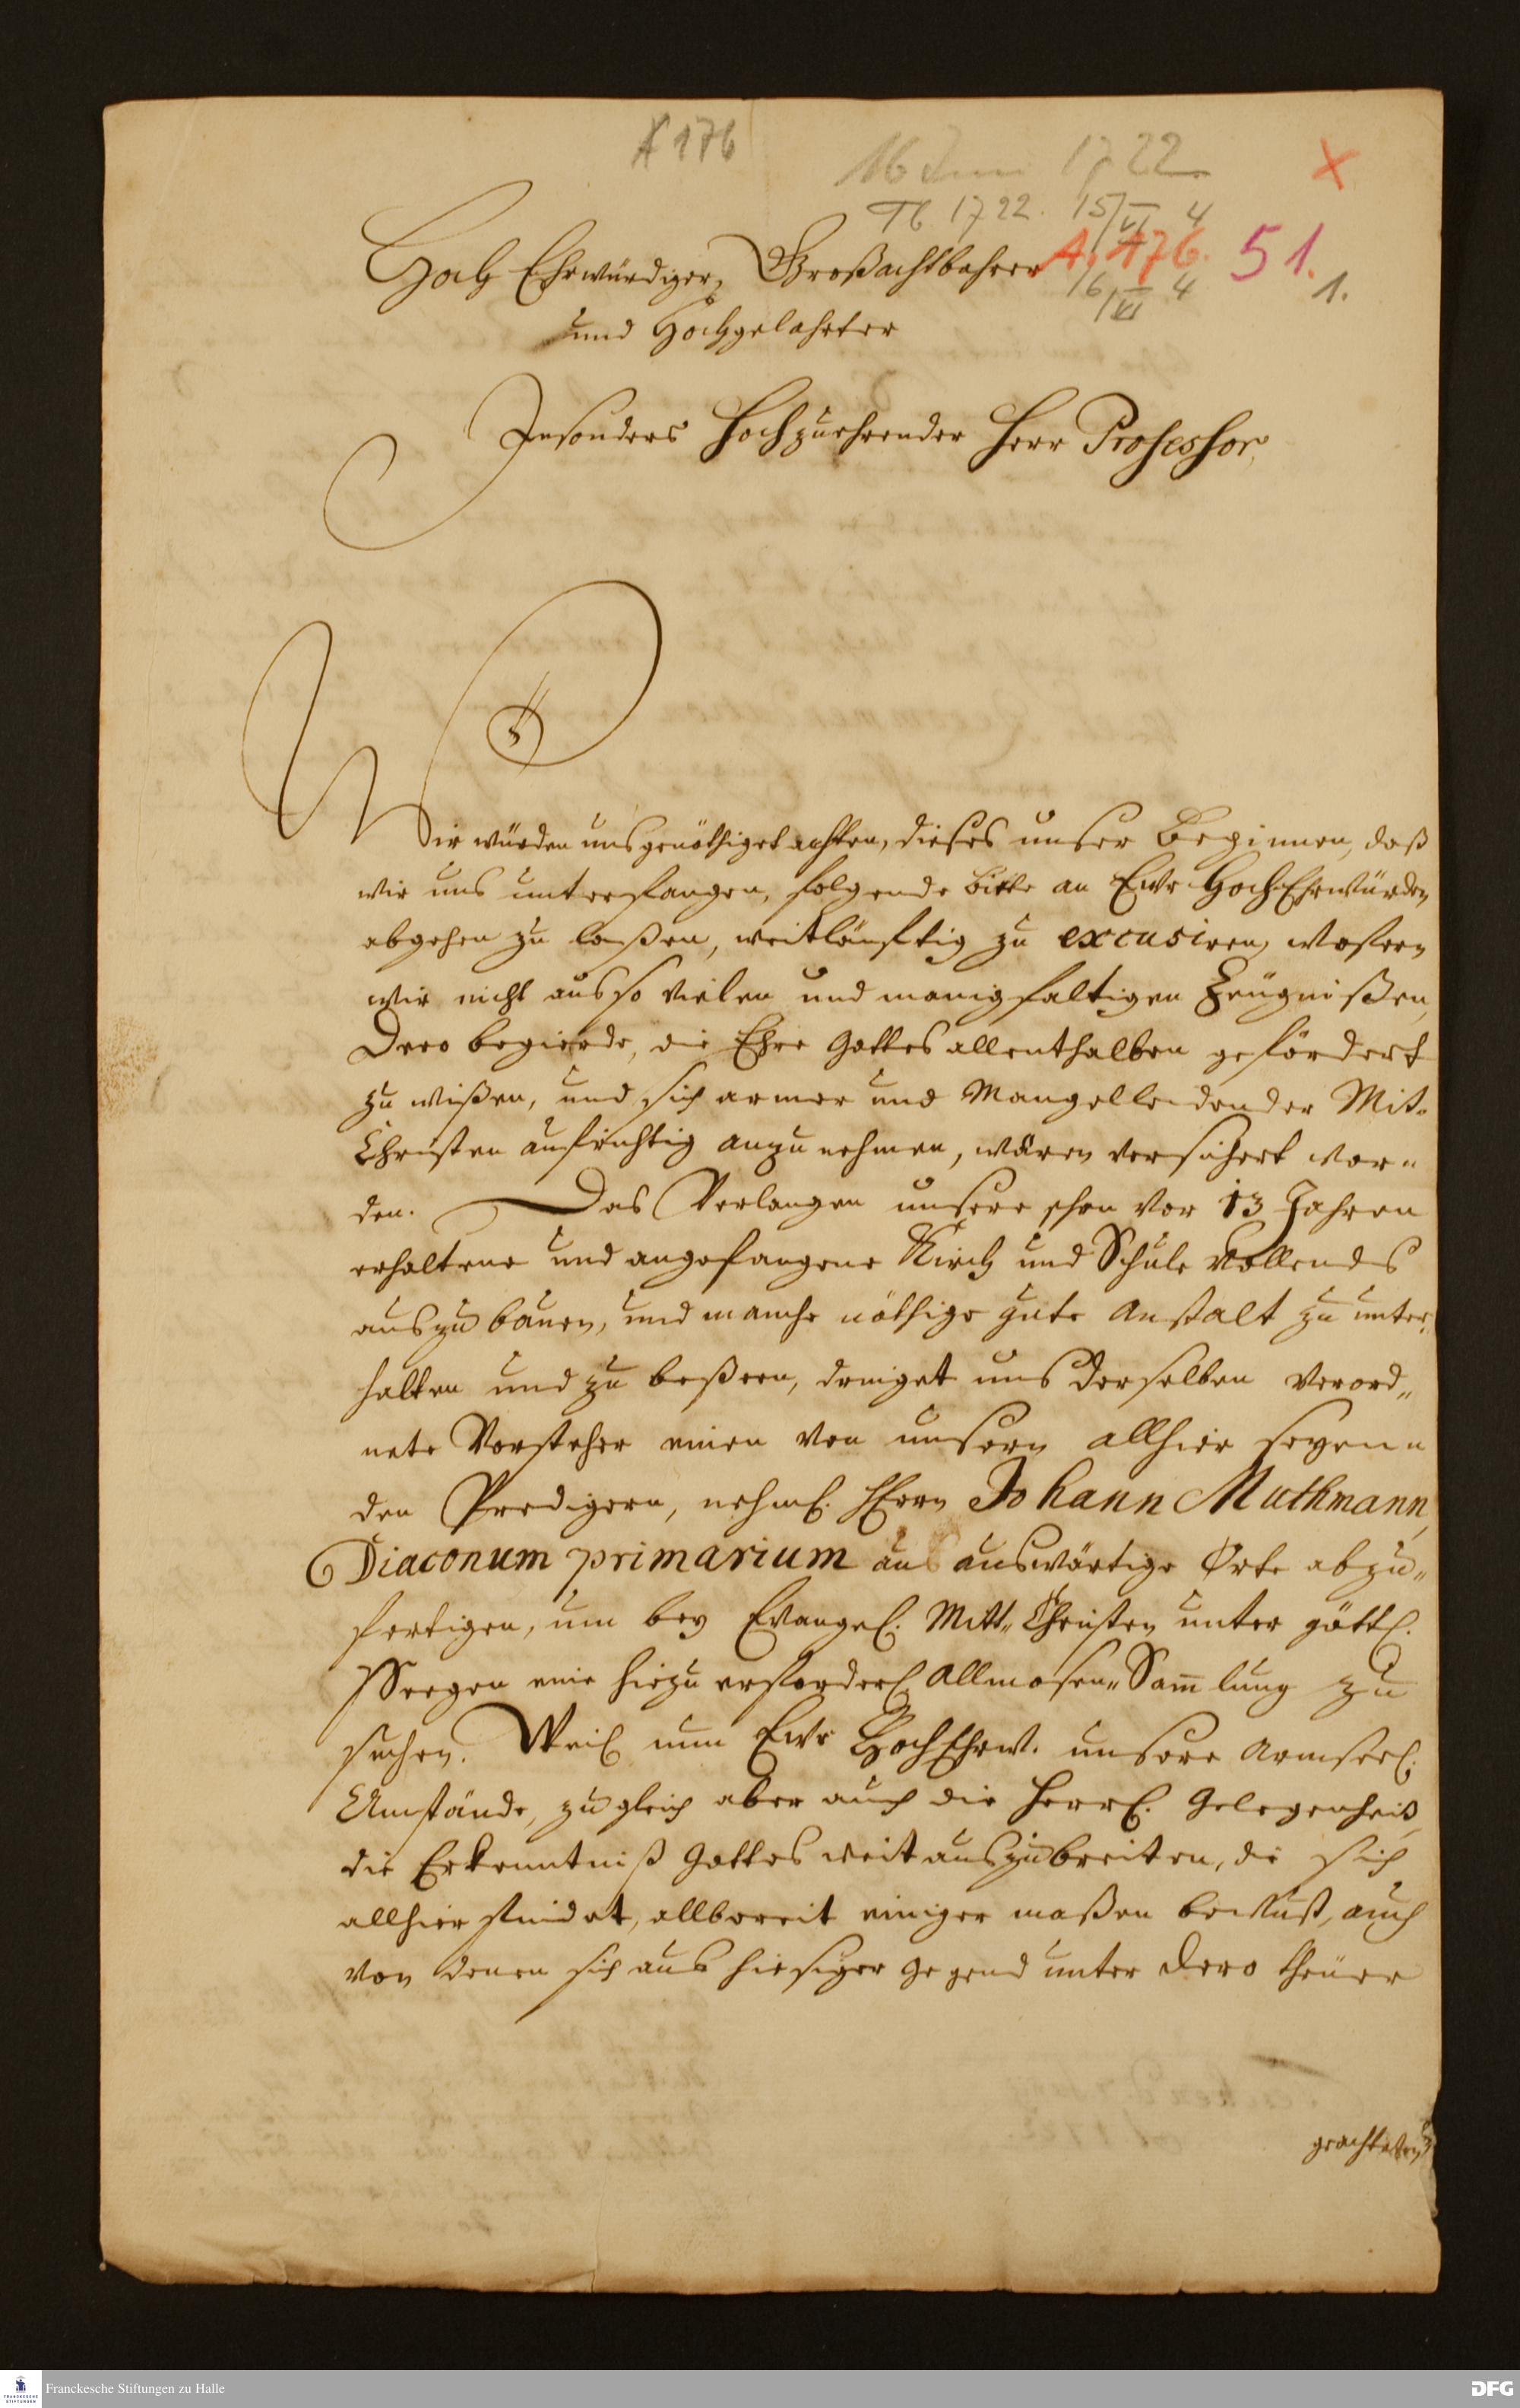 A 176
16 Juni 1722
Tb 1722. 15/VI 4
X
A, 176. 51.
16/VI 4 1.
Hoch Ehrwürdiger, Großachtbahrer
und Hochgelahrter
Insonders Hochzuehrender Herr Professor,
Wir würden uns genöthiget achten, dieses unser Beginnen, daß
wir uns unterfangen, folgende bitte an Ewr HochEhrwürden
abgehen zu laßen, weitläufftig zu excusiren, wofern
wir nicht aus so vielen und manigfaltigen Zeugnißen,
Dero begierde, die Ehre Gottes allenthalben gefördert
zu wißen, und sich armer und Mangelleidender Mit-
Christen aufrichtig anzunehmen, wären versichert wor-
den. Das Verlangen unsere schon vor 13 Jahren
erhaltene und angefangene Kirch und Schule vollends
auszubauen, und manche nöthige gute Anstalt zu unter-
halten und zu beßern, dringet uns derselben verord-
nete Vorsteher einen von unsern allhier seyen-
den Predigern, nehml. Herrn Johann Muthmann,
Diaconum primarium an auswärtige Orte abzu-
fertigen, um bey Evangel. Mitt-Christen unter göttl.
Seegen eine hiezu erforderl. Allmosen-Sam̅lung zu
suchen. Weil nun Ewr HochEhrw. unsere armseel.
Umstände, zugleich aber auch die herrl. Gelegenheit,
die Erkenntniß Gottes weit auszubreiten, die sich
allhier findet, allbereit einiger maßen bewust, auch
von denen sich aus hiesiger Gegend unter dero theuer
geachteten
Franckesche Stiftungen zu Halle
DFG